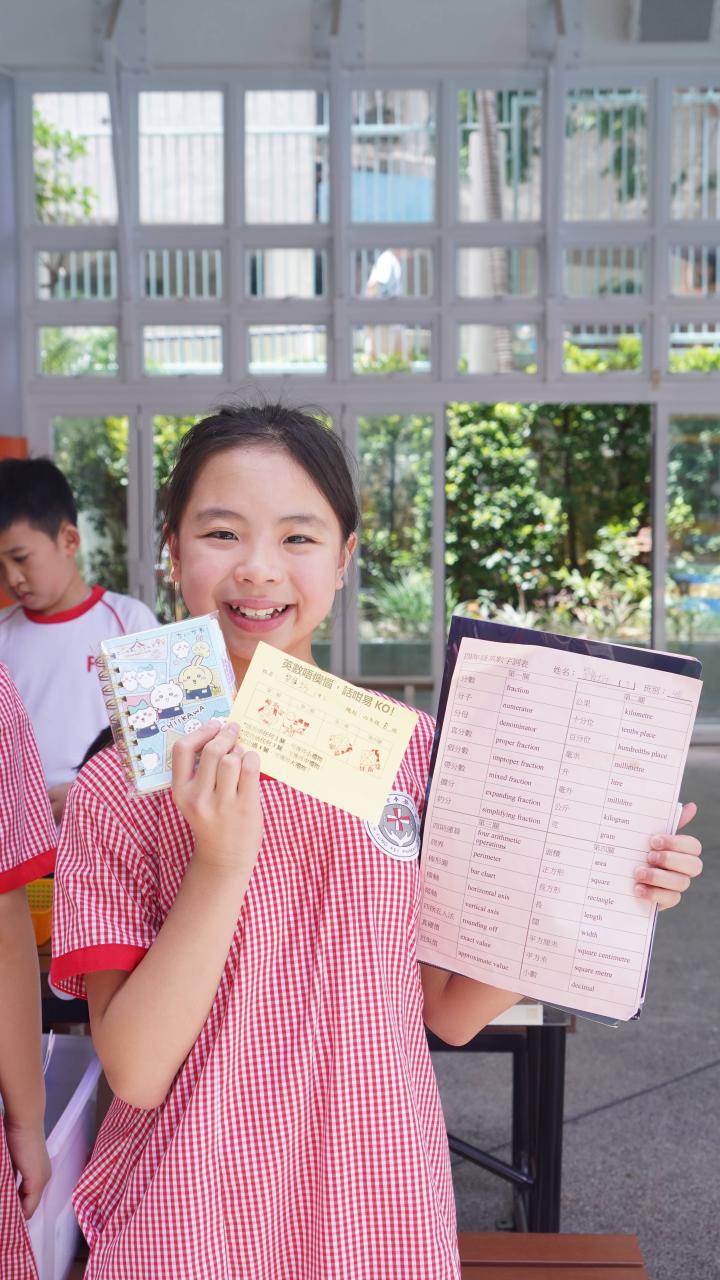 CHIIKAWA
英數唔懊惱，話咁易 KO!
四年級英數字詞表
姓名：
班別：
第一關
第二關
分數 fraction 公里 kilometre
分子 numerator 十分位 tenths place
分母 denominator 百分位 hundredths place
真分數 proper fraction 毫米 millimetre
假分數 improper fraction 升 litre
帶分數 mixed fraction 毫升 millilitre
擴分 expanding fraction 公斤 kilogram
約分 simplifying fraction 克 gram
第三關
第四關
四則運算 four arithmetic operations 面積 area
周界 perimeter 正方形 square
棒形圖 bar chart 長方形 rectangle
橫軸 horizontal axis 長 length
縱軸 vertical axis 闊 width
四捨五入法 rounding off 平方厘米 square centimetre
真確值 exact value 平方米 square metre
近似值 approximate value 小數 decimal